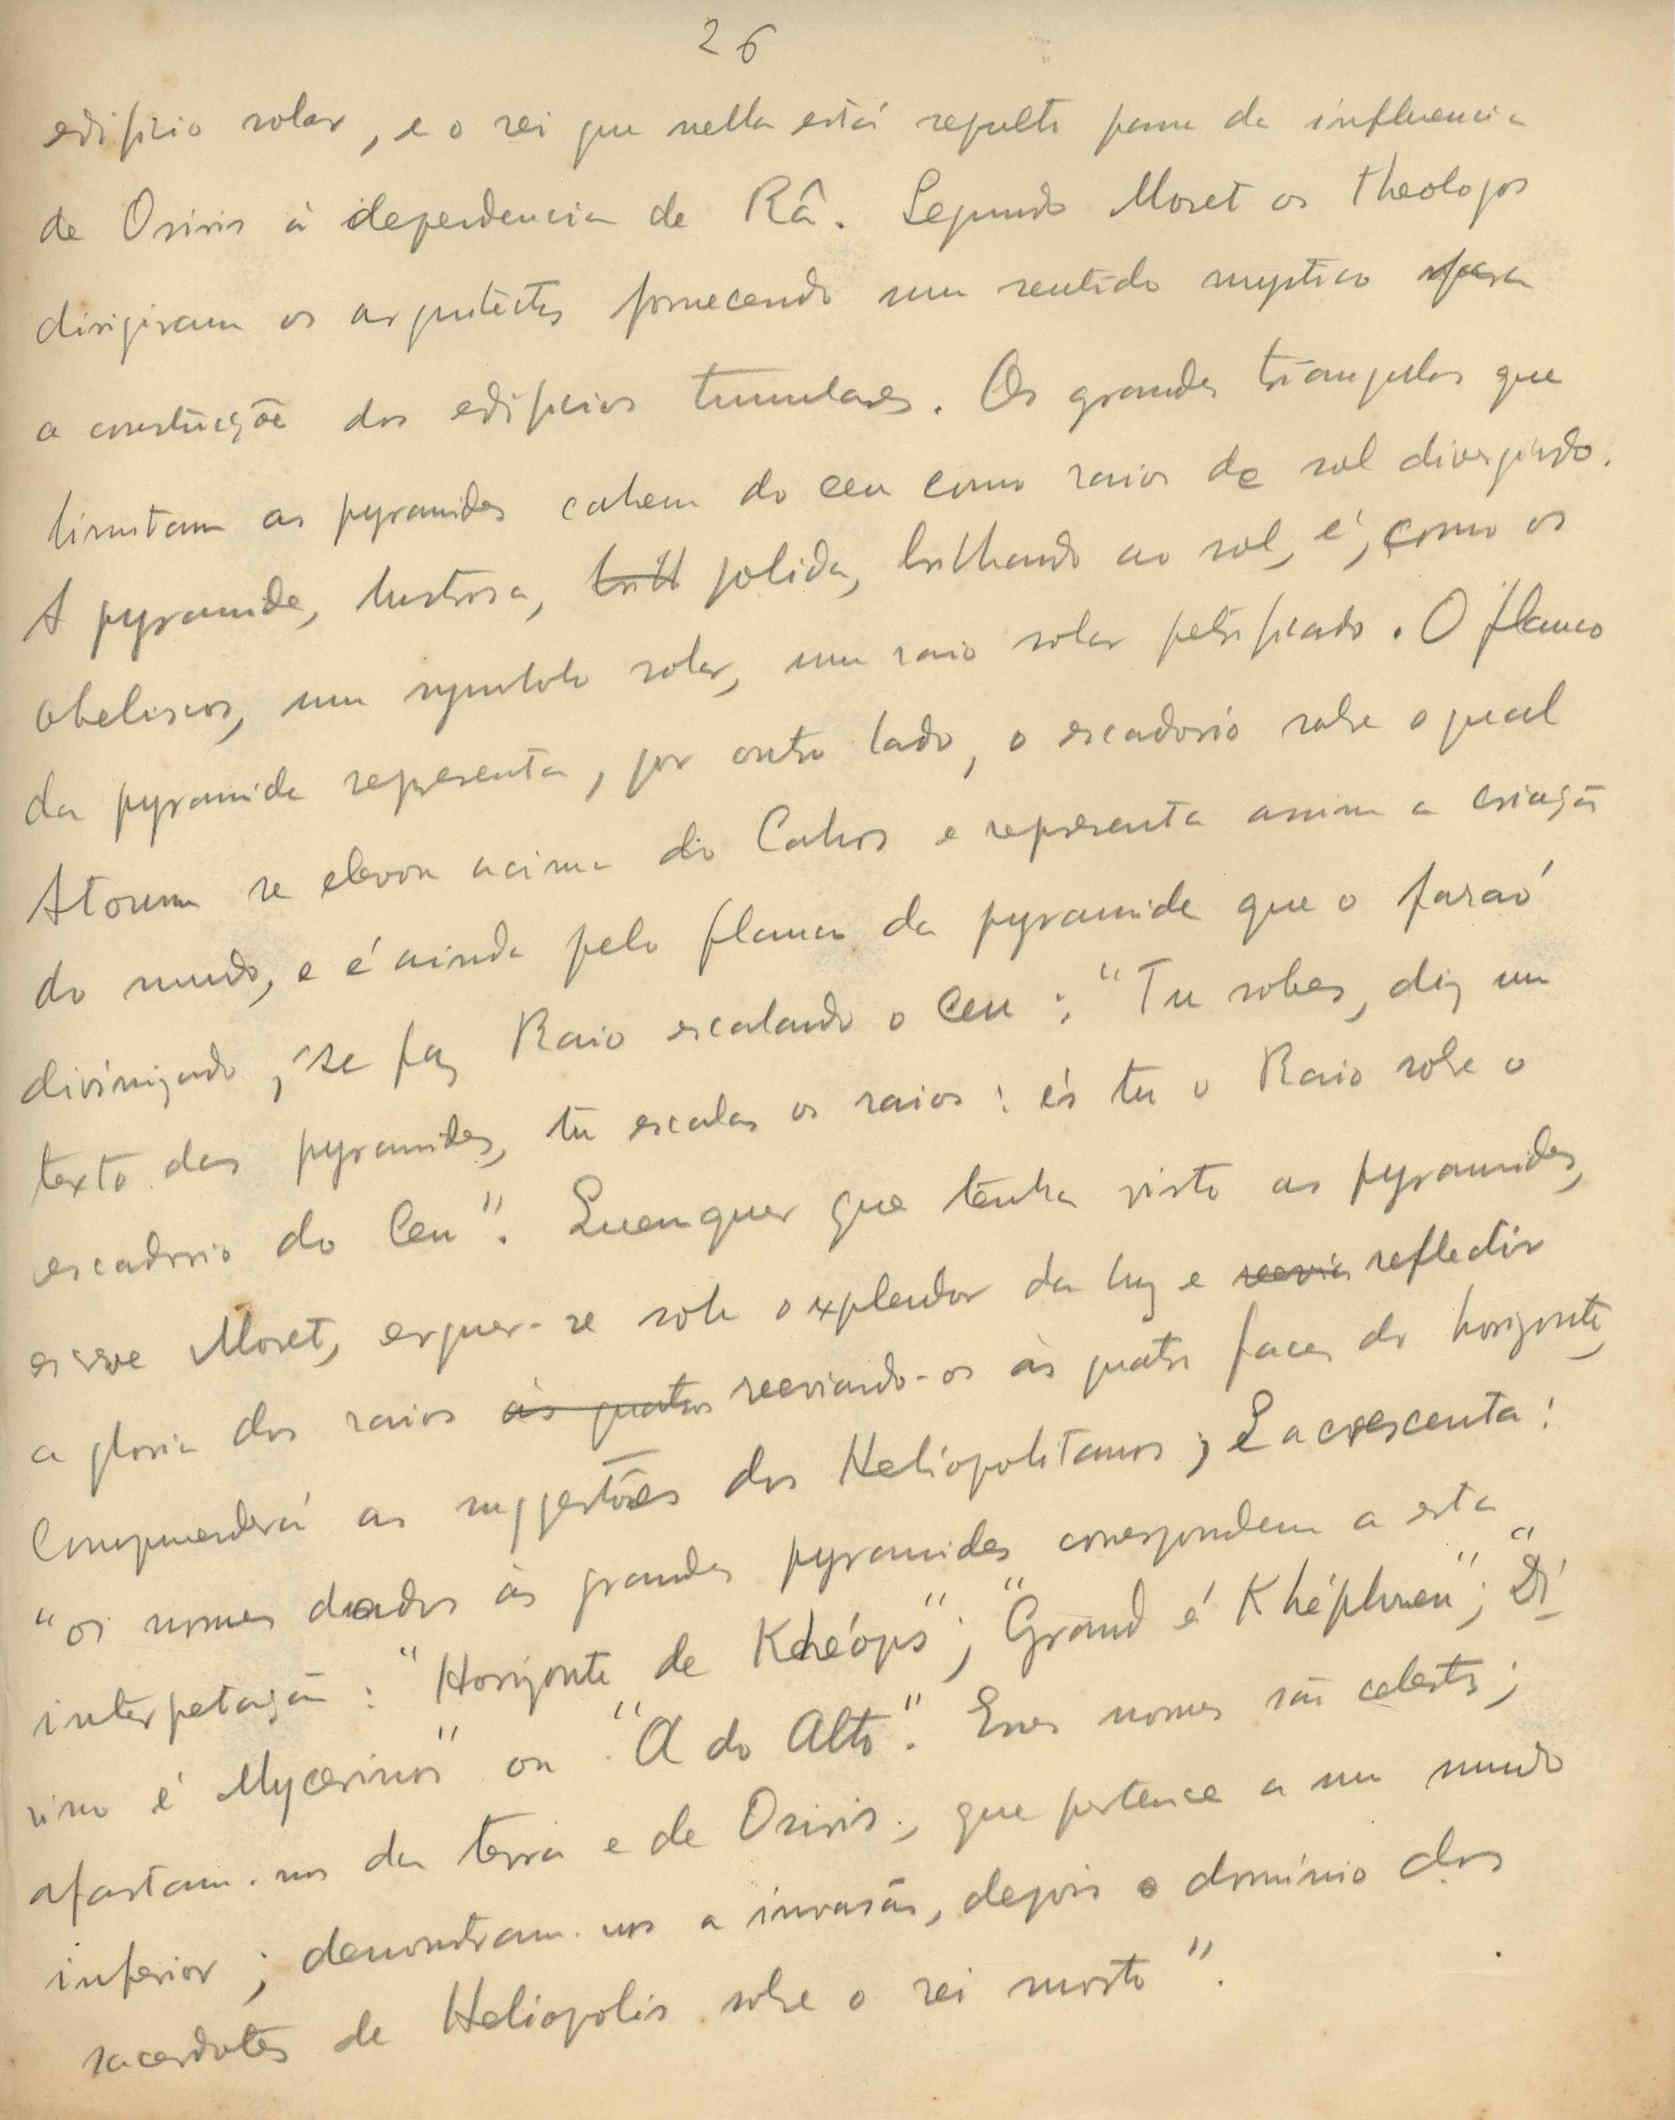 26
edificio solar, e o rei que nella está sepulto passa da influencia
de Osiris á dependencia de Râ. Segundo Moret os theologos
dirigiram os arquitectos fornecendo um sentido mystico para
a construcção dos edificios tumulares. Os grandes triangulos que
limitam as pyramides cahem do ceu como raios de sol divergindo.
A pyramide, lustrosa, brilh polida, brilhando ao sol, é, como os
obeliscos, um symbolo solar, um raio solar petrificado. O flanco
da pyramide representa, por outro lado, o escadorio sobre o qual
Atoum se elevou acima do Cahos e representa assim a criação
do mundo, e é ainda pelo flanco da pyramide que o faraó
divinizado, se faz Raio escalando o Ceu: "Tu sobes, diz um
texto das pyramides, tu escalas os raios: és tu o Raio sobre o
escadorio do Ceu". Quemquer que tenha visto as pyramides,
escreve Moret, erguer-se sob o explendor da luz e reenvia reflectir
a gloria dos raios ás quatro reenviando-os ás quatro faces do horizonte,
Comprenderá as suggestões dos Heliopolitanos; E acrescenta:
"os nomes dados ás grandes pyramides correspondem a esta
interpetação: "Horizonte de Khéops"; "Grand é Khéphren"; "Di-
vino é Mycerinos" ou "A do Alto". Esses nomes são celestes;
afastam-nos da terra e de Osiris, que pertence a um mundo
inferior; demonstram-nos a invasão, depois o dominio dos
sacerdotes de Heliopolis sobre o rei morto".